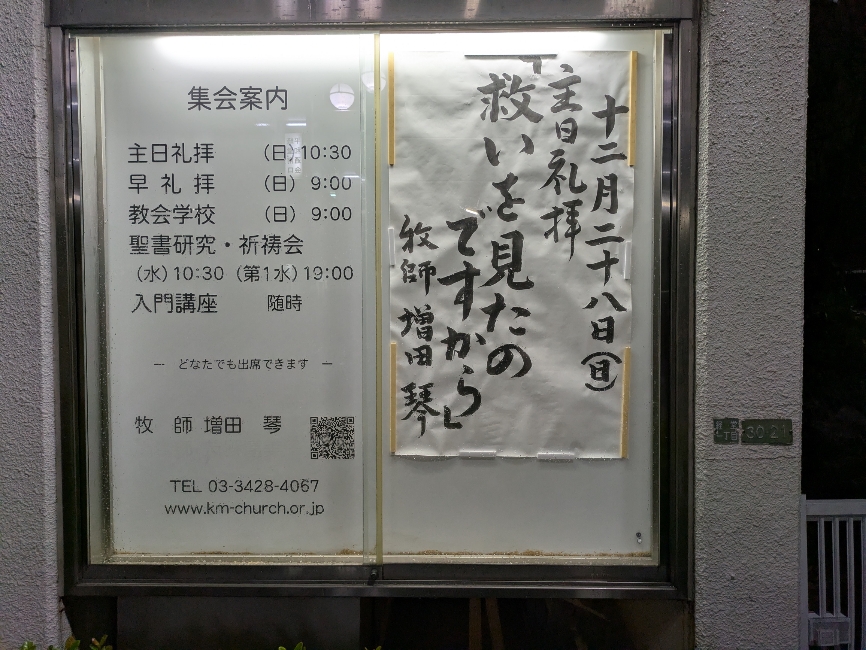 集会案内
主日礼拝 (日)10:30
早礼拝 (日) 9:00
教会学校 (日) 9:00
聖書研究・祈祷会
(水)10:30 (第1水)19:00
入門講座 随時
― どなたでも出席できます ―
牧 師 増田 琴
TEL 03-3428-4067
www.km-church.or.jp
十二月二十八日(日)
主日礼拝
「救いを見たの
ですから」
牧師 増田 琴
30-21